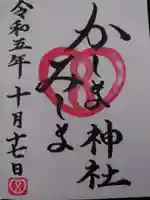 かしま神社
みしま
令和五年 十月十七日